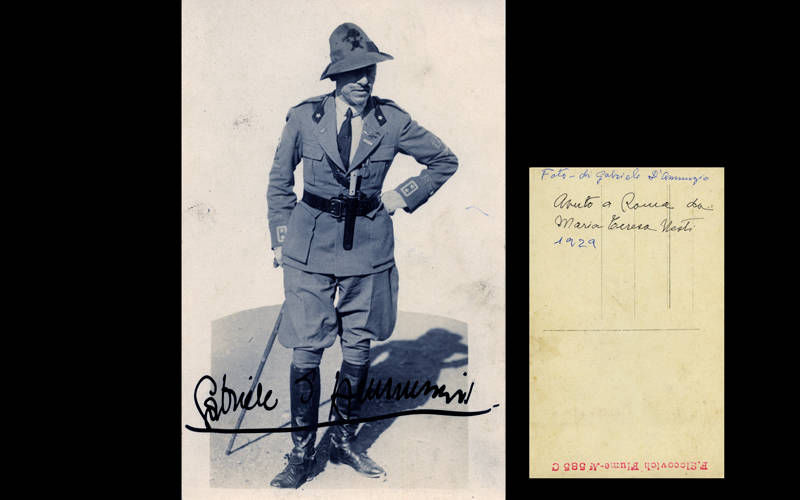 Gabriele D'Annunzio
Foto - di Gabriele D'Annunzio
Avuto a Roma da
Maria Teresa Nesti
1929
F. Slocovich Fiume-N 585 C